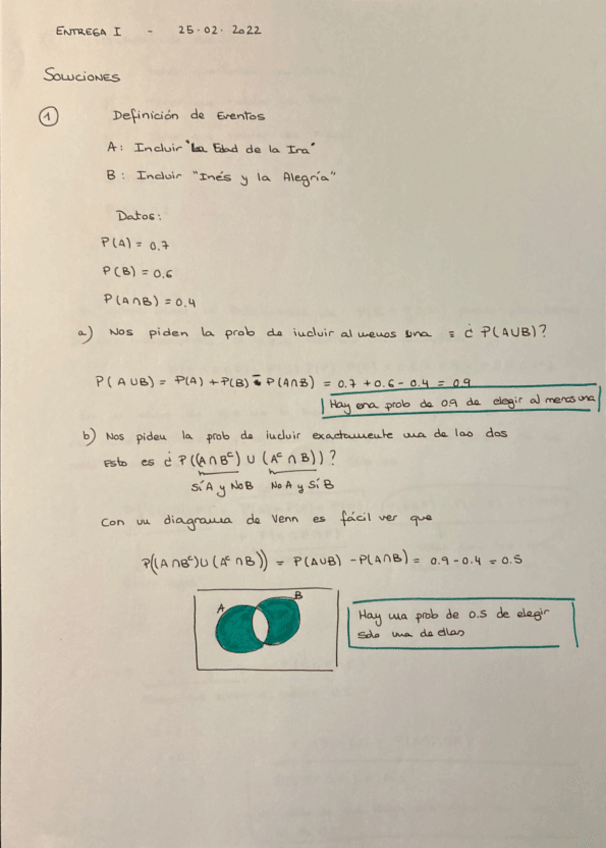 ENTREGA I - 25.02.2022
SOLUCIONES
1 Definición de Eventos
A: Incluir "La Edad de la Ira"
B: Incluir "Inés y la Alegría"
Datos:
P(A) = 0.7
P(B) = 0.6
P(A∩B) = 0.4
a) Nos piden la prob de incluir al menos una = ¿P(A∪B)?
P(A∪B) = P(A) + P(B) - P(A∩B) = 0.7 + 0.6 - 0.4 = 0.9
Hay una prob de 0.9 de elegir al menos una
b) Nos piden la prob de incluir exactamente una de las dos
Esto es ¿P((A∩Bᶜ) ∪ (Aᶜ∩B))?
SÍ A y NO B NO A y SÍ B
Con un diagrama de Venn es fácil ver que
P((A∩Bᶜ)∪(Aᶜ∩B)) = P(A∪B) - P(A∩B) = 0.9 - 0.4 = 0.5
A B
Hay una prob de 0.5 de elegir
solo una de ellas